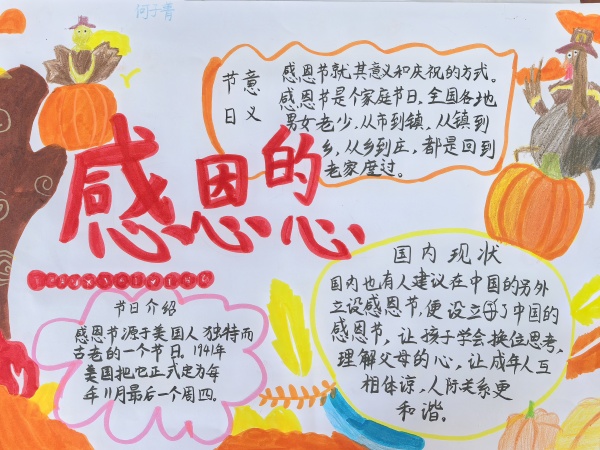 节意
日义
感恩节就其意义和庆祝的方式。
感恩节是个家庭节日,全国各地
男女老少,从市到镇,从镇到
乡,从乡到庄,都是回到
老家度过。
感恩的
心
国内现状
国内也有人建议在中国的另外
立设感恩节,便设立了中国的
感恩节,让孩子学会换位思考,
理解父母的心,让成年人互
相体谅,人际关系更
和谐。
节日介绍
感恩节源于美国人独特而
古老的一个节日。1941年
美国把它正式定为每
年11月最后一个周四。